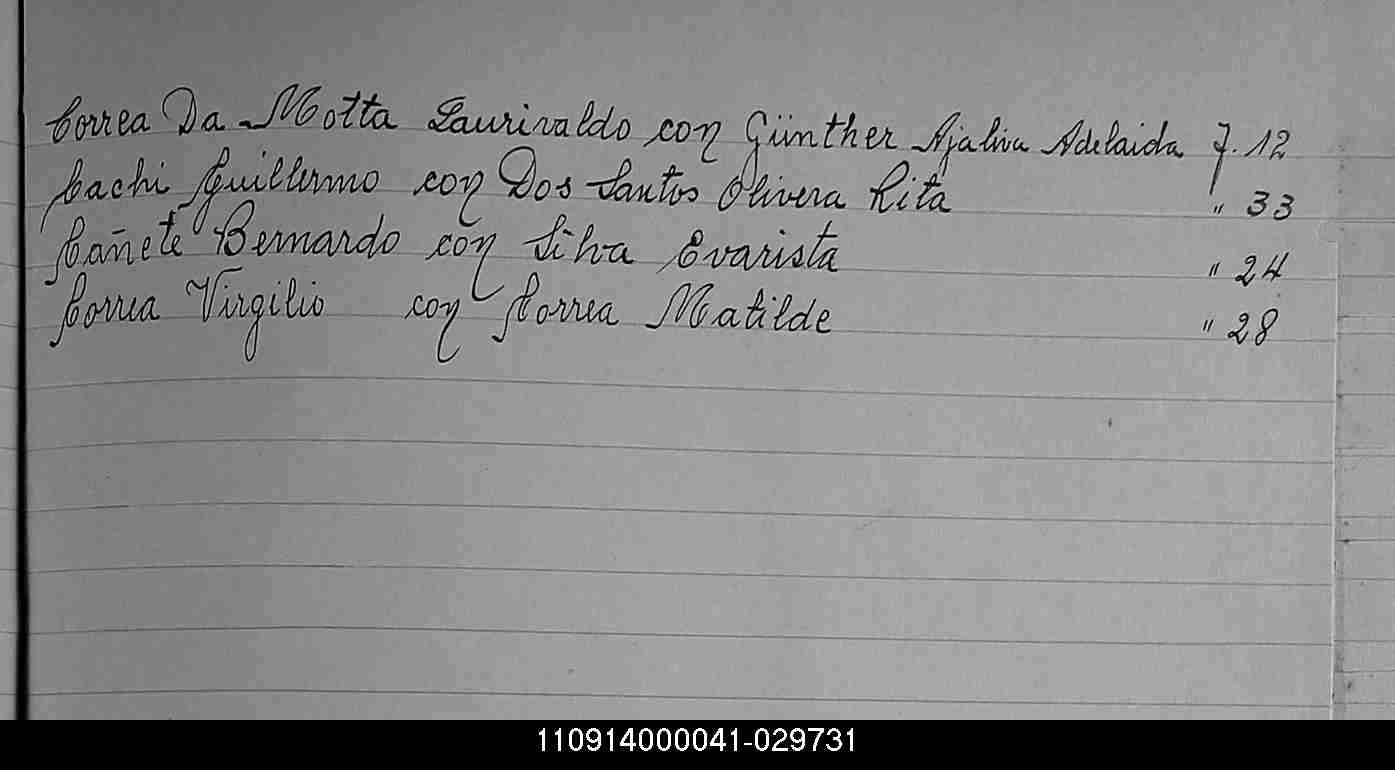 Correa Da Motta Laurivaldo con Günther Ajaliva Adelaida F. 12
Cachi Guillermo con Dos Santos Olivera Rita " 33
Cañete Bernardo con Silva Evarista " 24
Correa Virgilio con Correa Matilde " 28
110914000041-029731